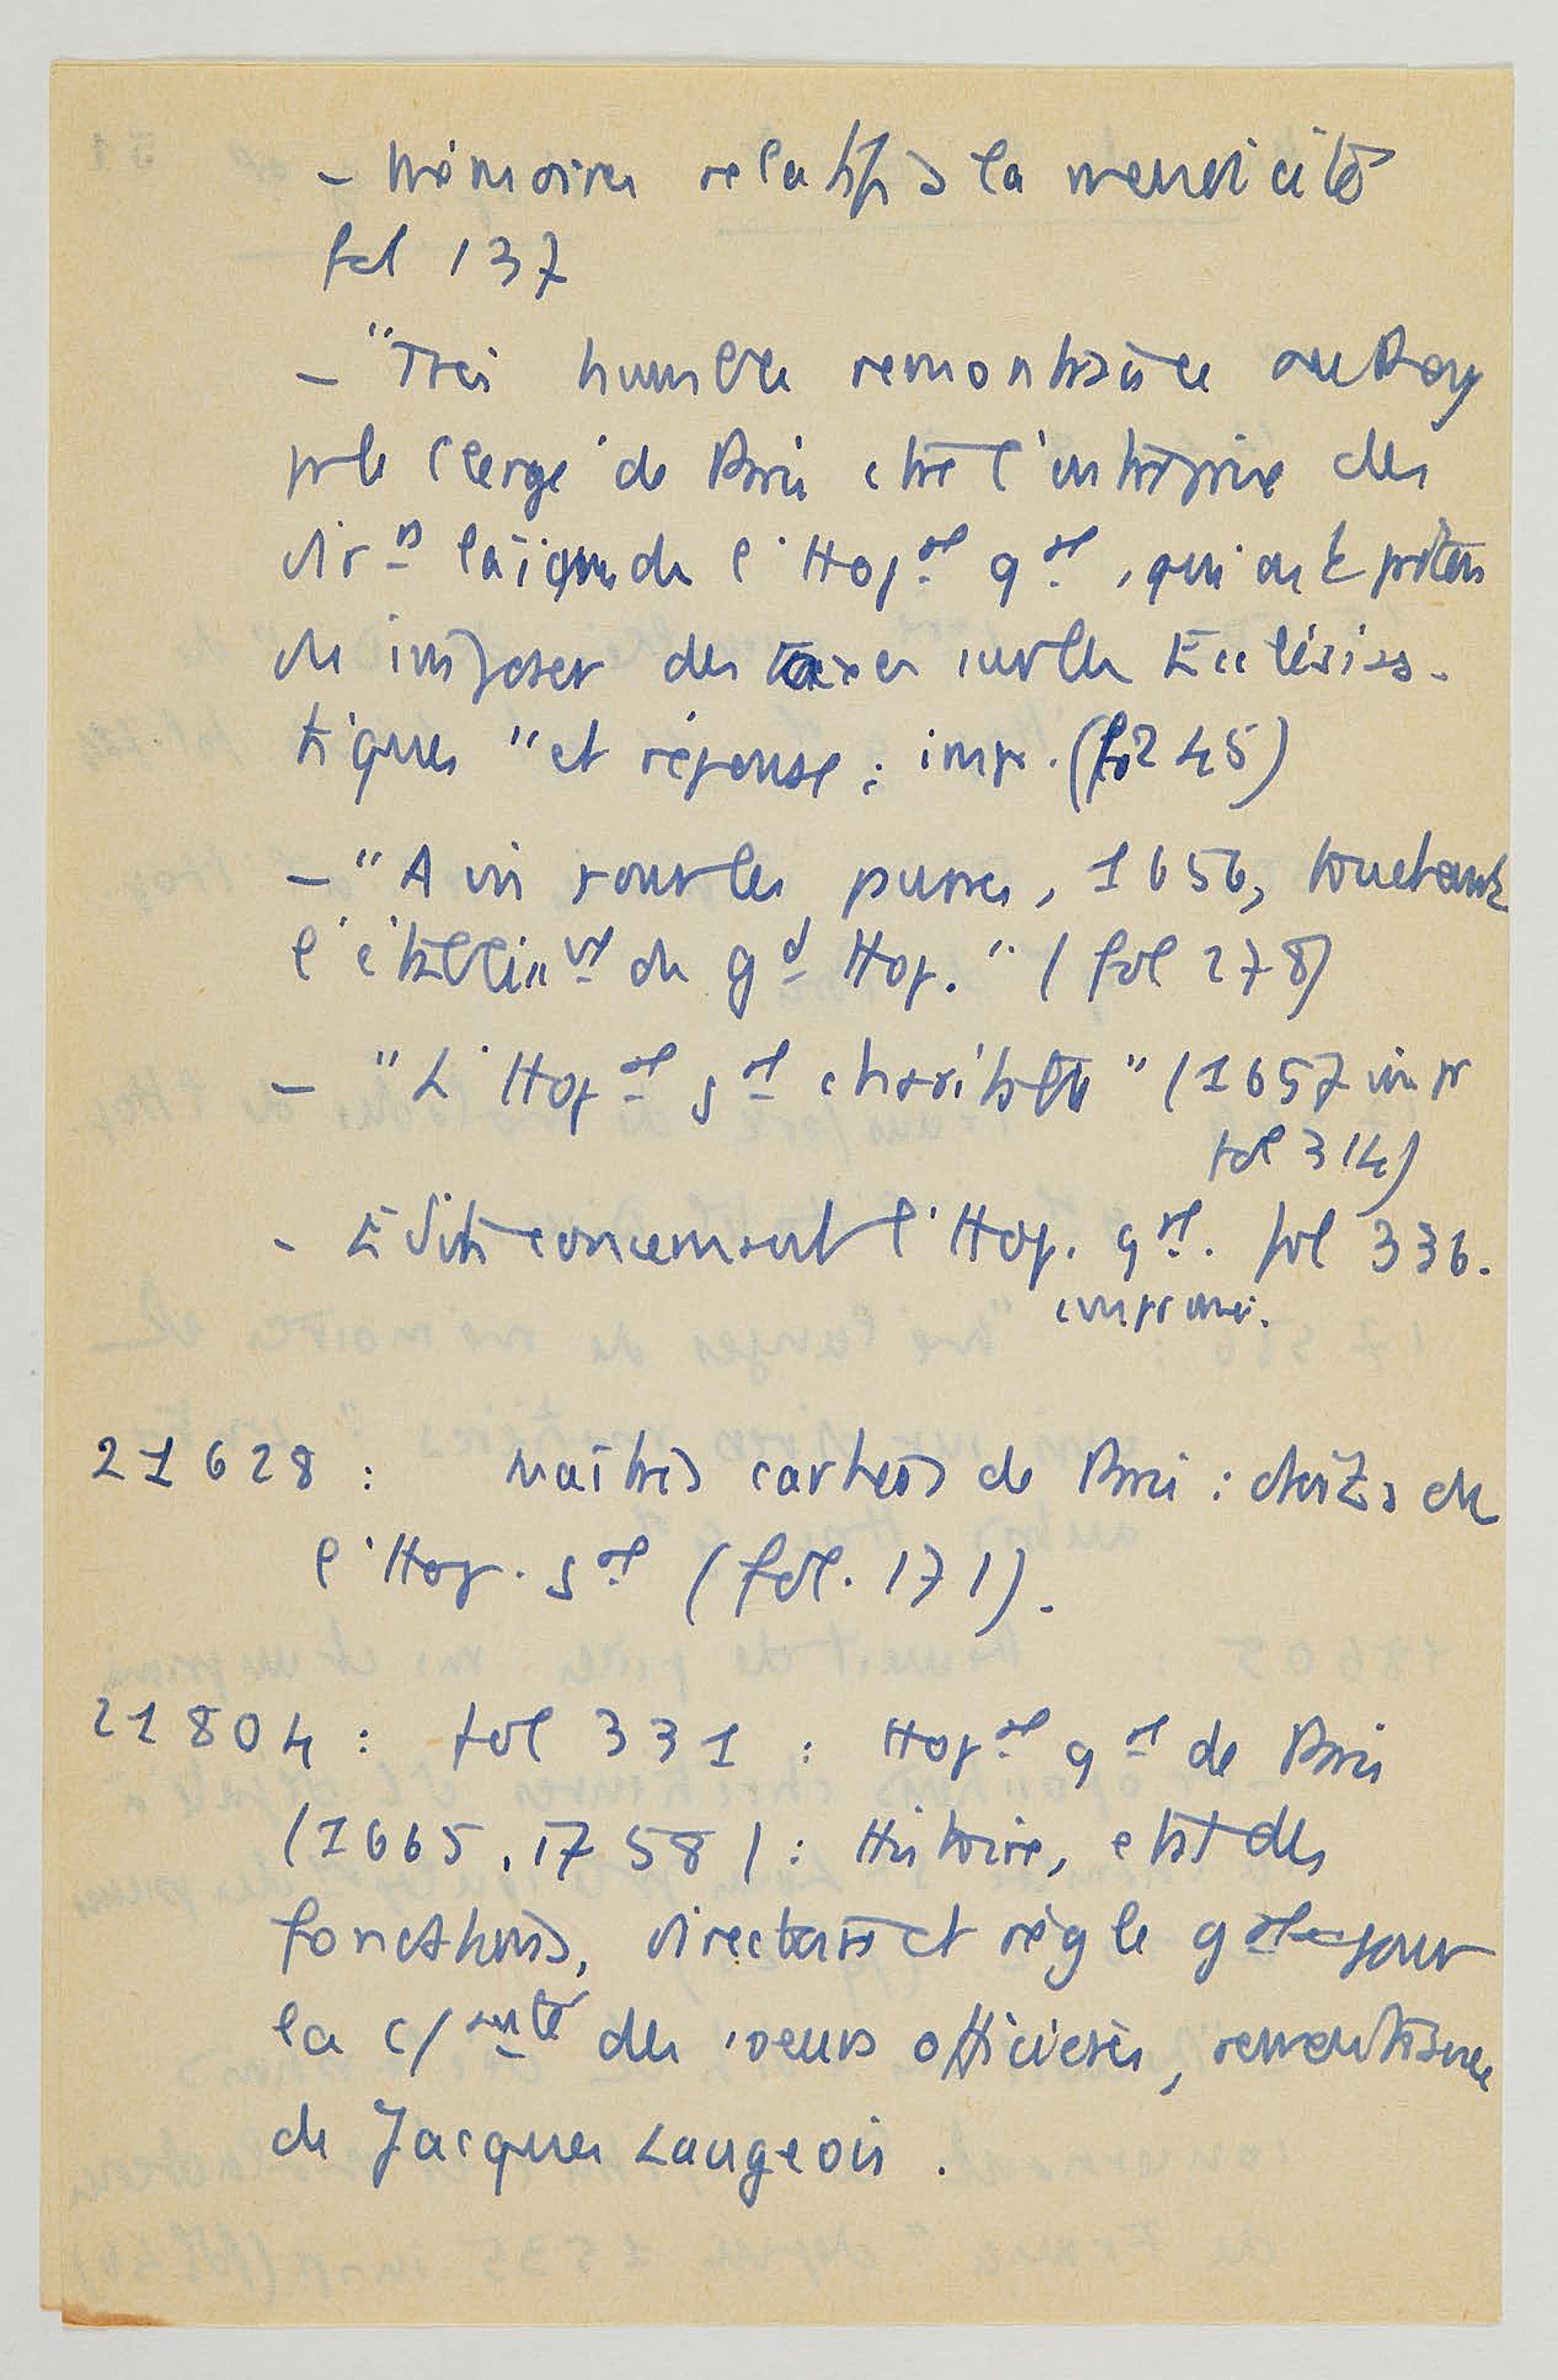 - Mémoires relatifs à la mendicité
fol 137
- "Très humble remontrance au Roy
par le Clergé de Paris ctre l'entreprise des
dirrs laïques de l'Hopal gal, qui ont préten
du imposer des taxes sur les Ecclésias-
tiques" et réponse : impr. (fo 245)
- "Avis pour les pauvres, 1656, touchant
l'établisst du gd Hop." (fol 278)
- "L'Hopal gal charitable" (1657 impr
fol 314)
- Edits concernant l'Hop. gal. fol 336.
imprimé.
21628 : Maîtres cartiers de Paris : droits de
l'Hop. gal (fol. 171).
21804 : fol 331 : Hopal gal de Paris
(1665.1758) : Histoire, état des
fonctions, directeurs et règle gale pour
la c/auté des soeurs officières, remontrance
de Jacques Laugeois.